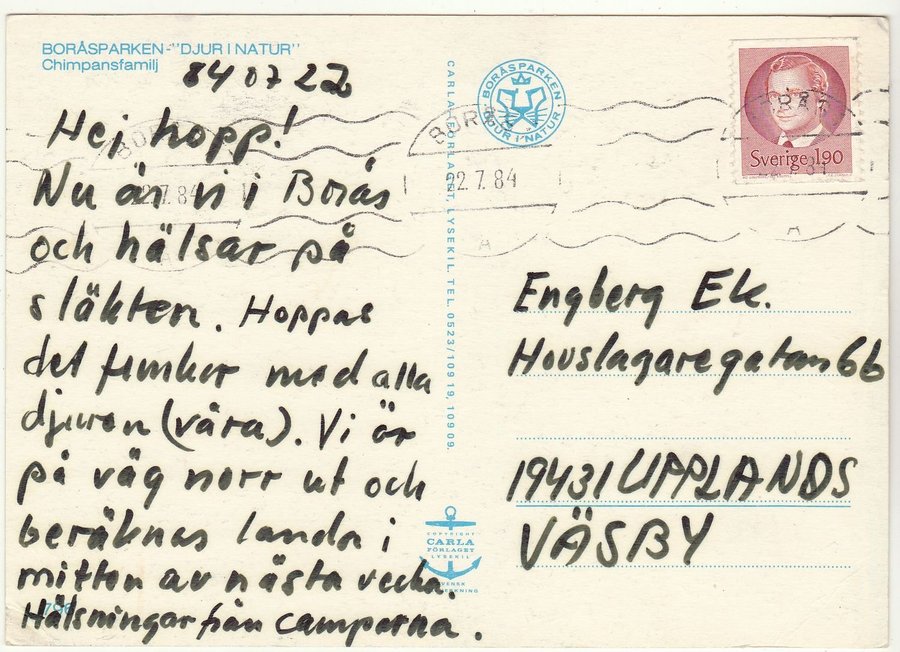 BORÅSPARKEN-"DJUR I NATUR"
Chimpansfamilj
84 07 22
Hej hopp!
Nu är vi i Borås
och hälsar på
släkten. Hoppas
det funkar med alla
djuren (våra). Vi är
på väg norr ut och
beräknas landa i
mitten av nästa vecka.
Hälsningar från camparna.
CARLA-FÖRLAGET, LYSEKIL TEL. 0523/109 19, 109 09.
BORÅSPARKEN
DJUR I NATUR
BORÅS
22.7.84
Sverige 1.90
Engberg Ek.
Hovslagaregatan 6b
19431 UPPLANDS
VÄSBY
COPYRIGHT
CARLA
FÖRLAGET
LYSEKIL